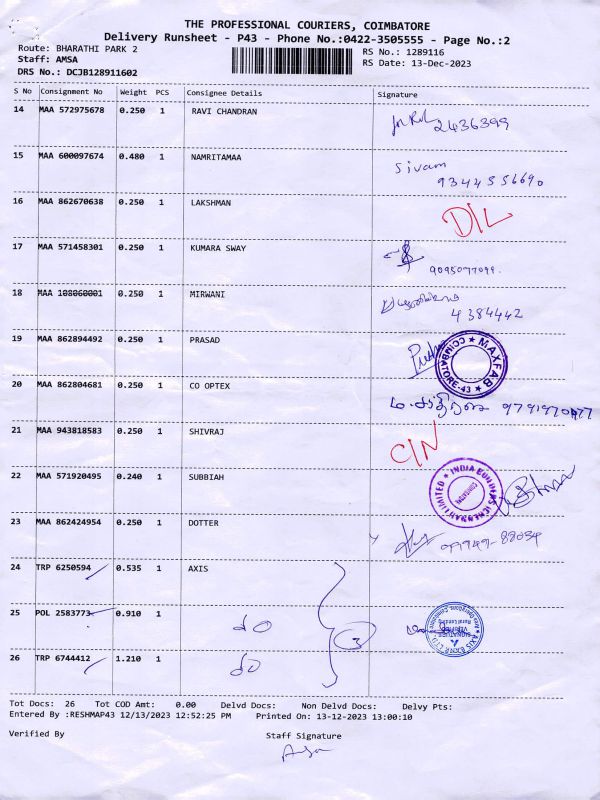 THE PROFESSIONAL COURIERS, COIMBATORE
Delivery Runsheet - P43 - Phone No.:0422-3505555 - Page No.:2
Route: BHARATHI PARK 2
RS No.: 1289116
Staff: AMSA
RS Date: 13-Dec-2023
DRS No.: DCJB128911602
S No Consignment No Weight PCS Consignee Details Signature
14 MAA 572975678 0.250 1 RAVI CHANDRAN
2436399
15 MAA 600097674 0.480 1 NAMRITAMAA Sivam
9344556690
16 MAA 862670638 0.250 1 LAKSHMAN D/L
17 MAA 571458301 0.250 1 KUMARA SWAY
9095077099.
18 MAA 108060001 0.250 1 MIRWANI
4384442
19 MAA 862894492 0.250 1 PRASAD
MAXFAB ★ COIMBATORE-43 ★
20 MAA 862804681 0.250 1 CO OPTEX
21 MAA 943818583 0.250 1 SHIVRAJ C/N
22 MAA 571920495 0.240 1 SUBBIAH
23 MAA 862424954 0.250 1 DOTTER
24 TRP 6250594 0.535 1 AXIS
25 POL 2583773 0.910 1 do
3
26 TRP 6744412 1.210 1 do
Tot Docs: 26 Tot COD Amt: 0.00 Delvd Docs: Non Delvd Docs: Delvy Pts:
Entered By :RESHMAP43 12/13/2023 12:52:25 PM Printed On: 13-12-2023 13:00:10
Verified By Staff Signature